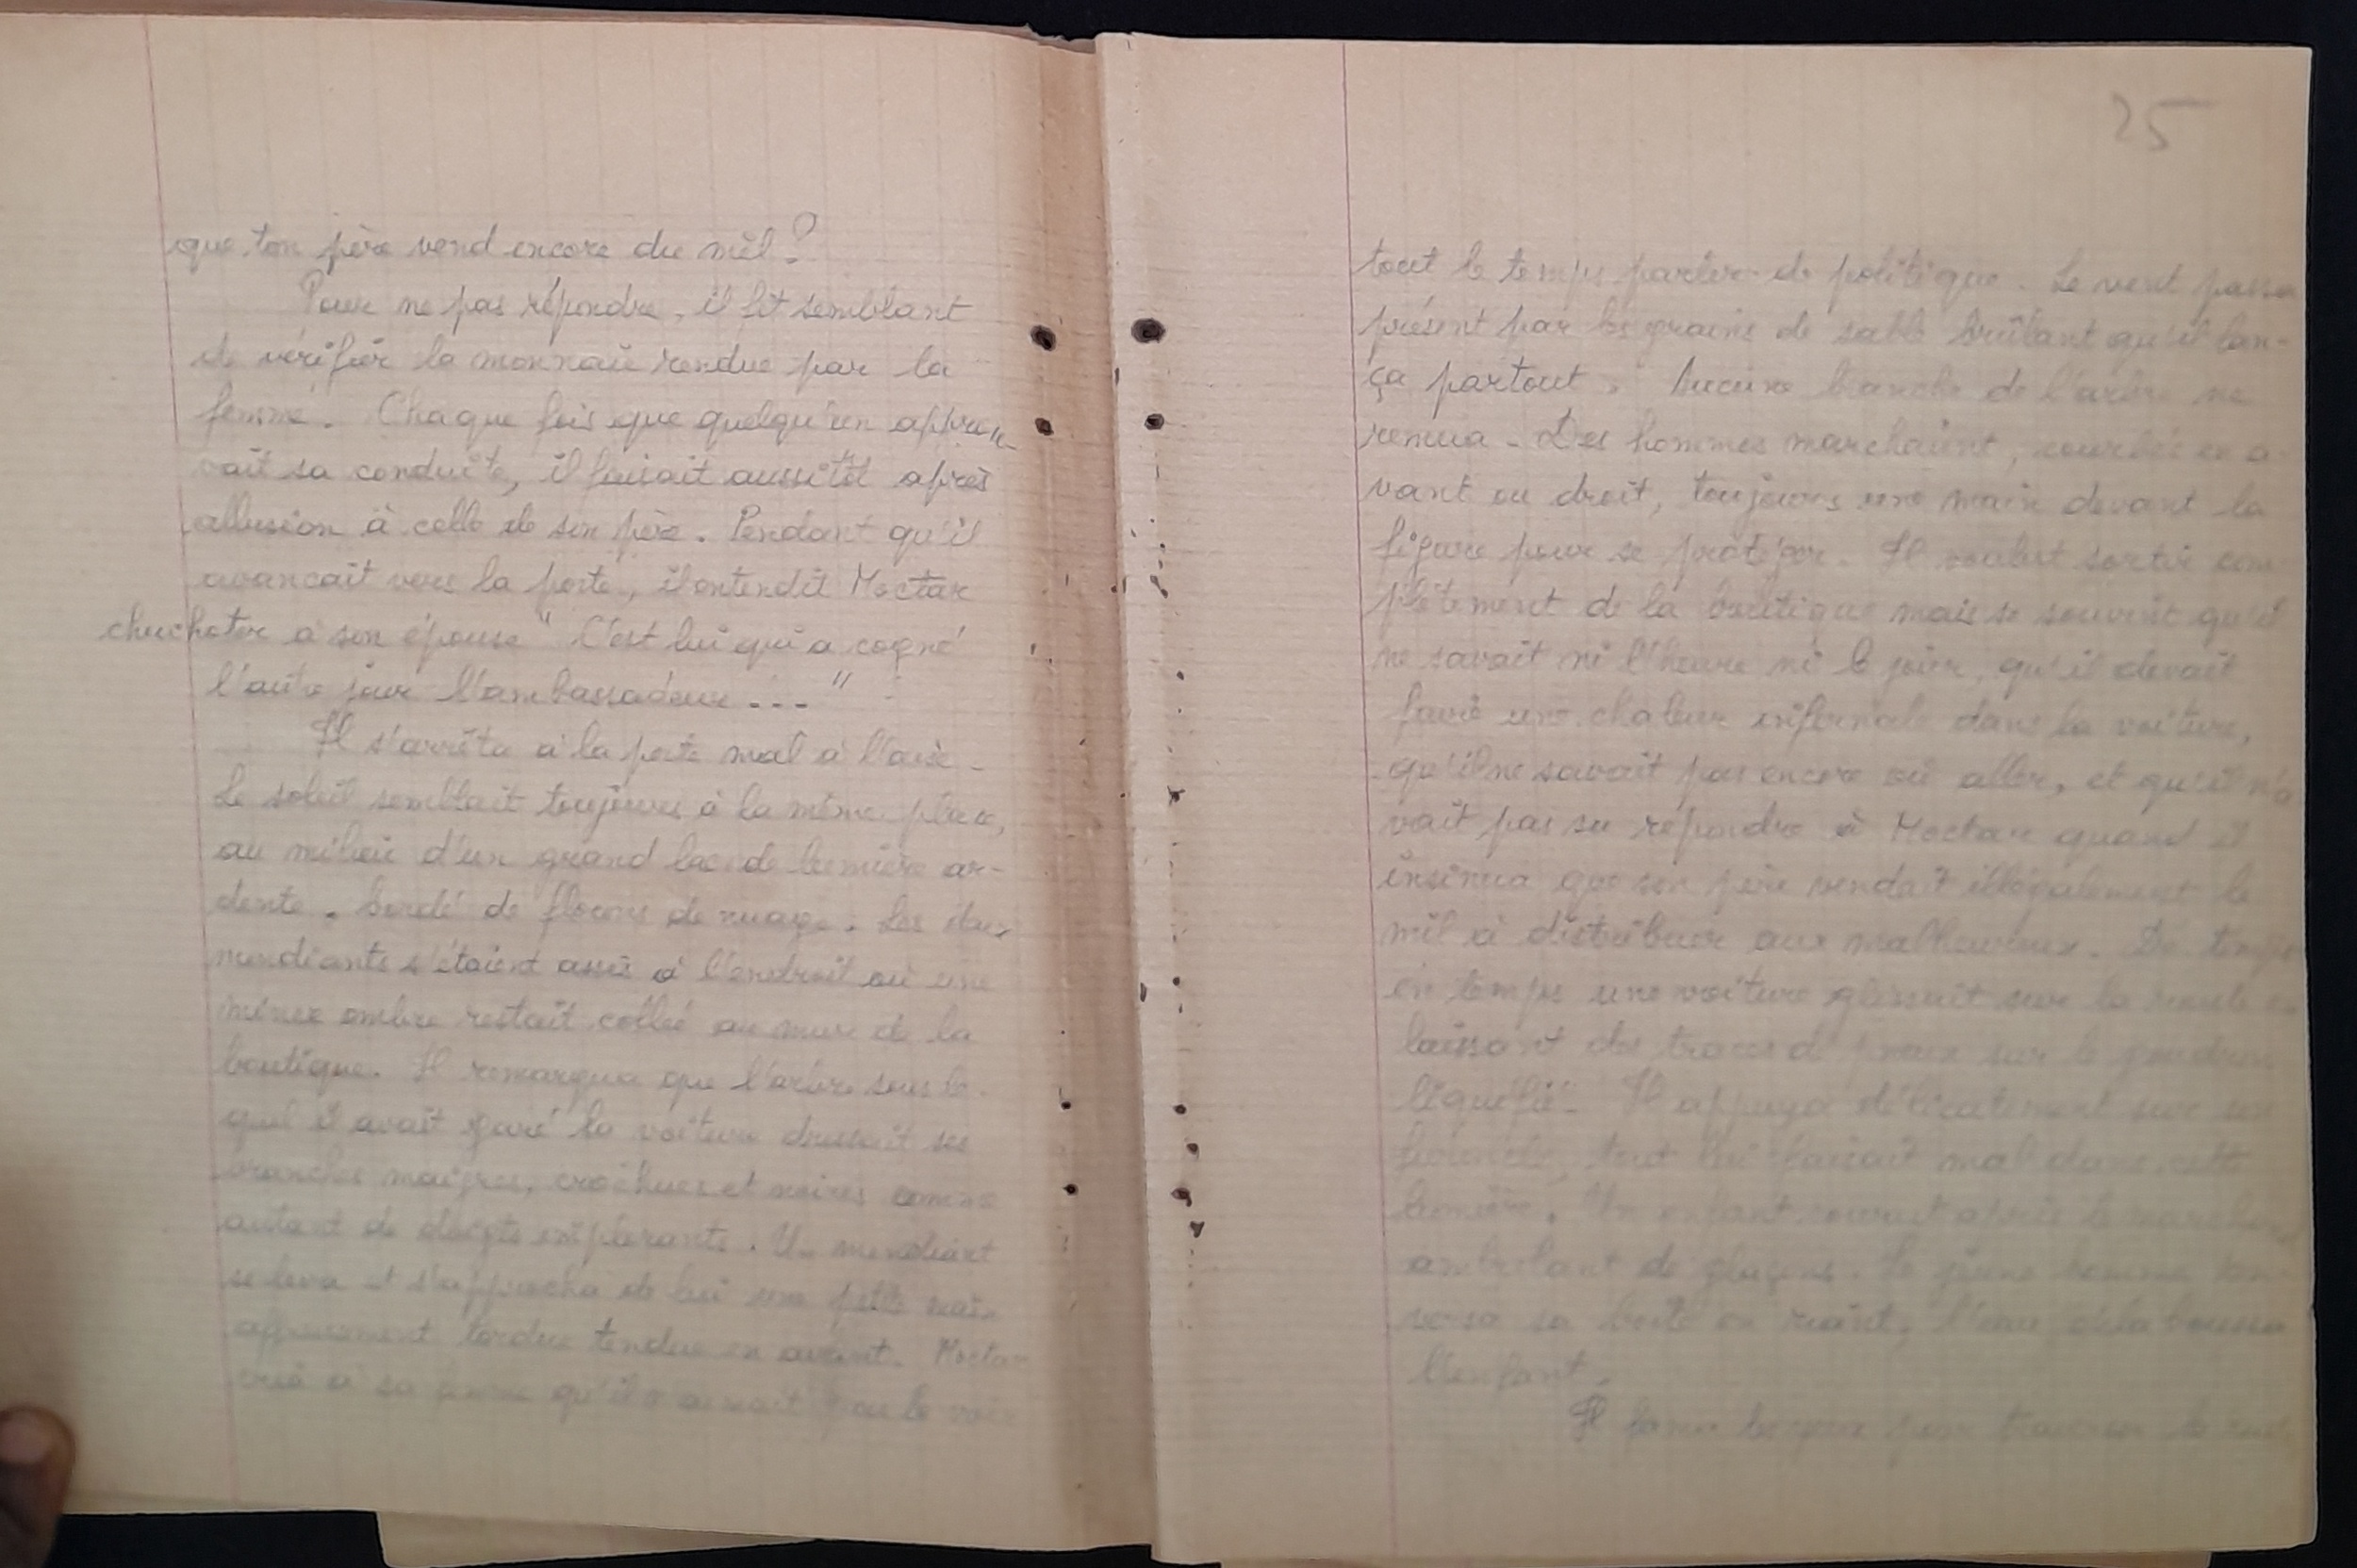 que ton père vend encore du mil ?
Pour ne pas répondre, il fit semblant
de vérifier la monnaie rendue par la
femme. Chaque fois que quelqu'un approu-
vait sa conduite, il faisait aussitôt après
allusion à celle de son père. Pendant qu'il
avancait vers la porte, il entendit Moctar
chuchoter à son épouse " C'est lui qui a cogné
l'autre jour l'ambassadeur ... "
Il s'arrêta à la porte mal à l'aise.
Le soleil semblait toujours à la même place,
au milieu d'un grand lac de lumière ar-
dente, bordé de flocons de nuage. Les deux
mendiants s'étaient assis à l'endroit où une
mince ombre restait collée au mur de la
boutique. Il remarqua que l'arbre sous le-
quel il avait garé la voiture dressait ses
branches maigres, crochues et noires comme
autant de doigts implorants. Un mendiant
se leva et s'approcha de lui une petite main
affreusement tordue tendue en avant. Moctar
cria à sa femme qu'il n'aimait pas le voir
25
tout le temps parler de politique. Le vent passa
présent par les grains de sable brûlant qu'il lan-
ça partout. Aucune branche de l'arbre ne
remua. Des hommes marchaient, courbés en a-
vant ou droit, toujours une main devant la
figure pour se protéger. Il voulut sortir com-
plètement de la boutique mais se souvint qu'il
ne savait ni l'heure ni le jour, qu'il devait
faire une chaleur infernale dans la voiture,
qu'il ne savait pas encore où aller, et qu'il n'a
vait pas su répondre à Moctar quand il
insinua que son père vendait illégalement le
mil à distribuer aux malheureux. De temps
en temps une voiture glissait sur la route en
laissant des traces de pneux sur le goudron
liquéfié. Il appuya délicatement sur ses
tout lui faisait mal dans cette
lumière. Un enfant courait après le marchand
ambulant de glaçons. Le jeune homme ren-
versa sa boîte en riant, l'eau éclaboussa
l'enfant.
Il ferma les yeux pour traverser la rue